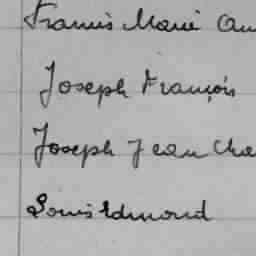 Francis Marie
Joseph François
Joseph Jean Cha
Louis Edmond